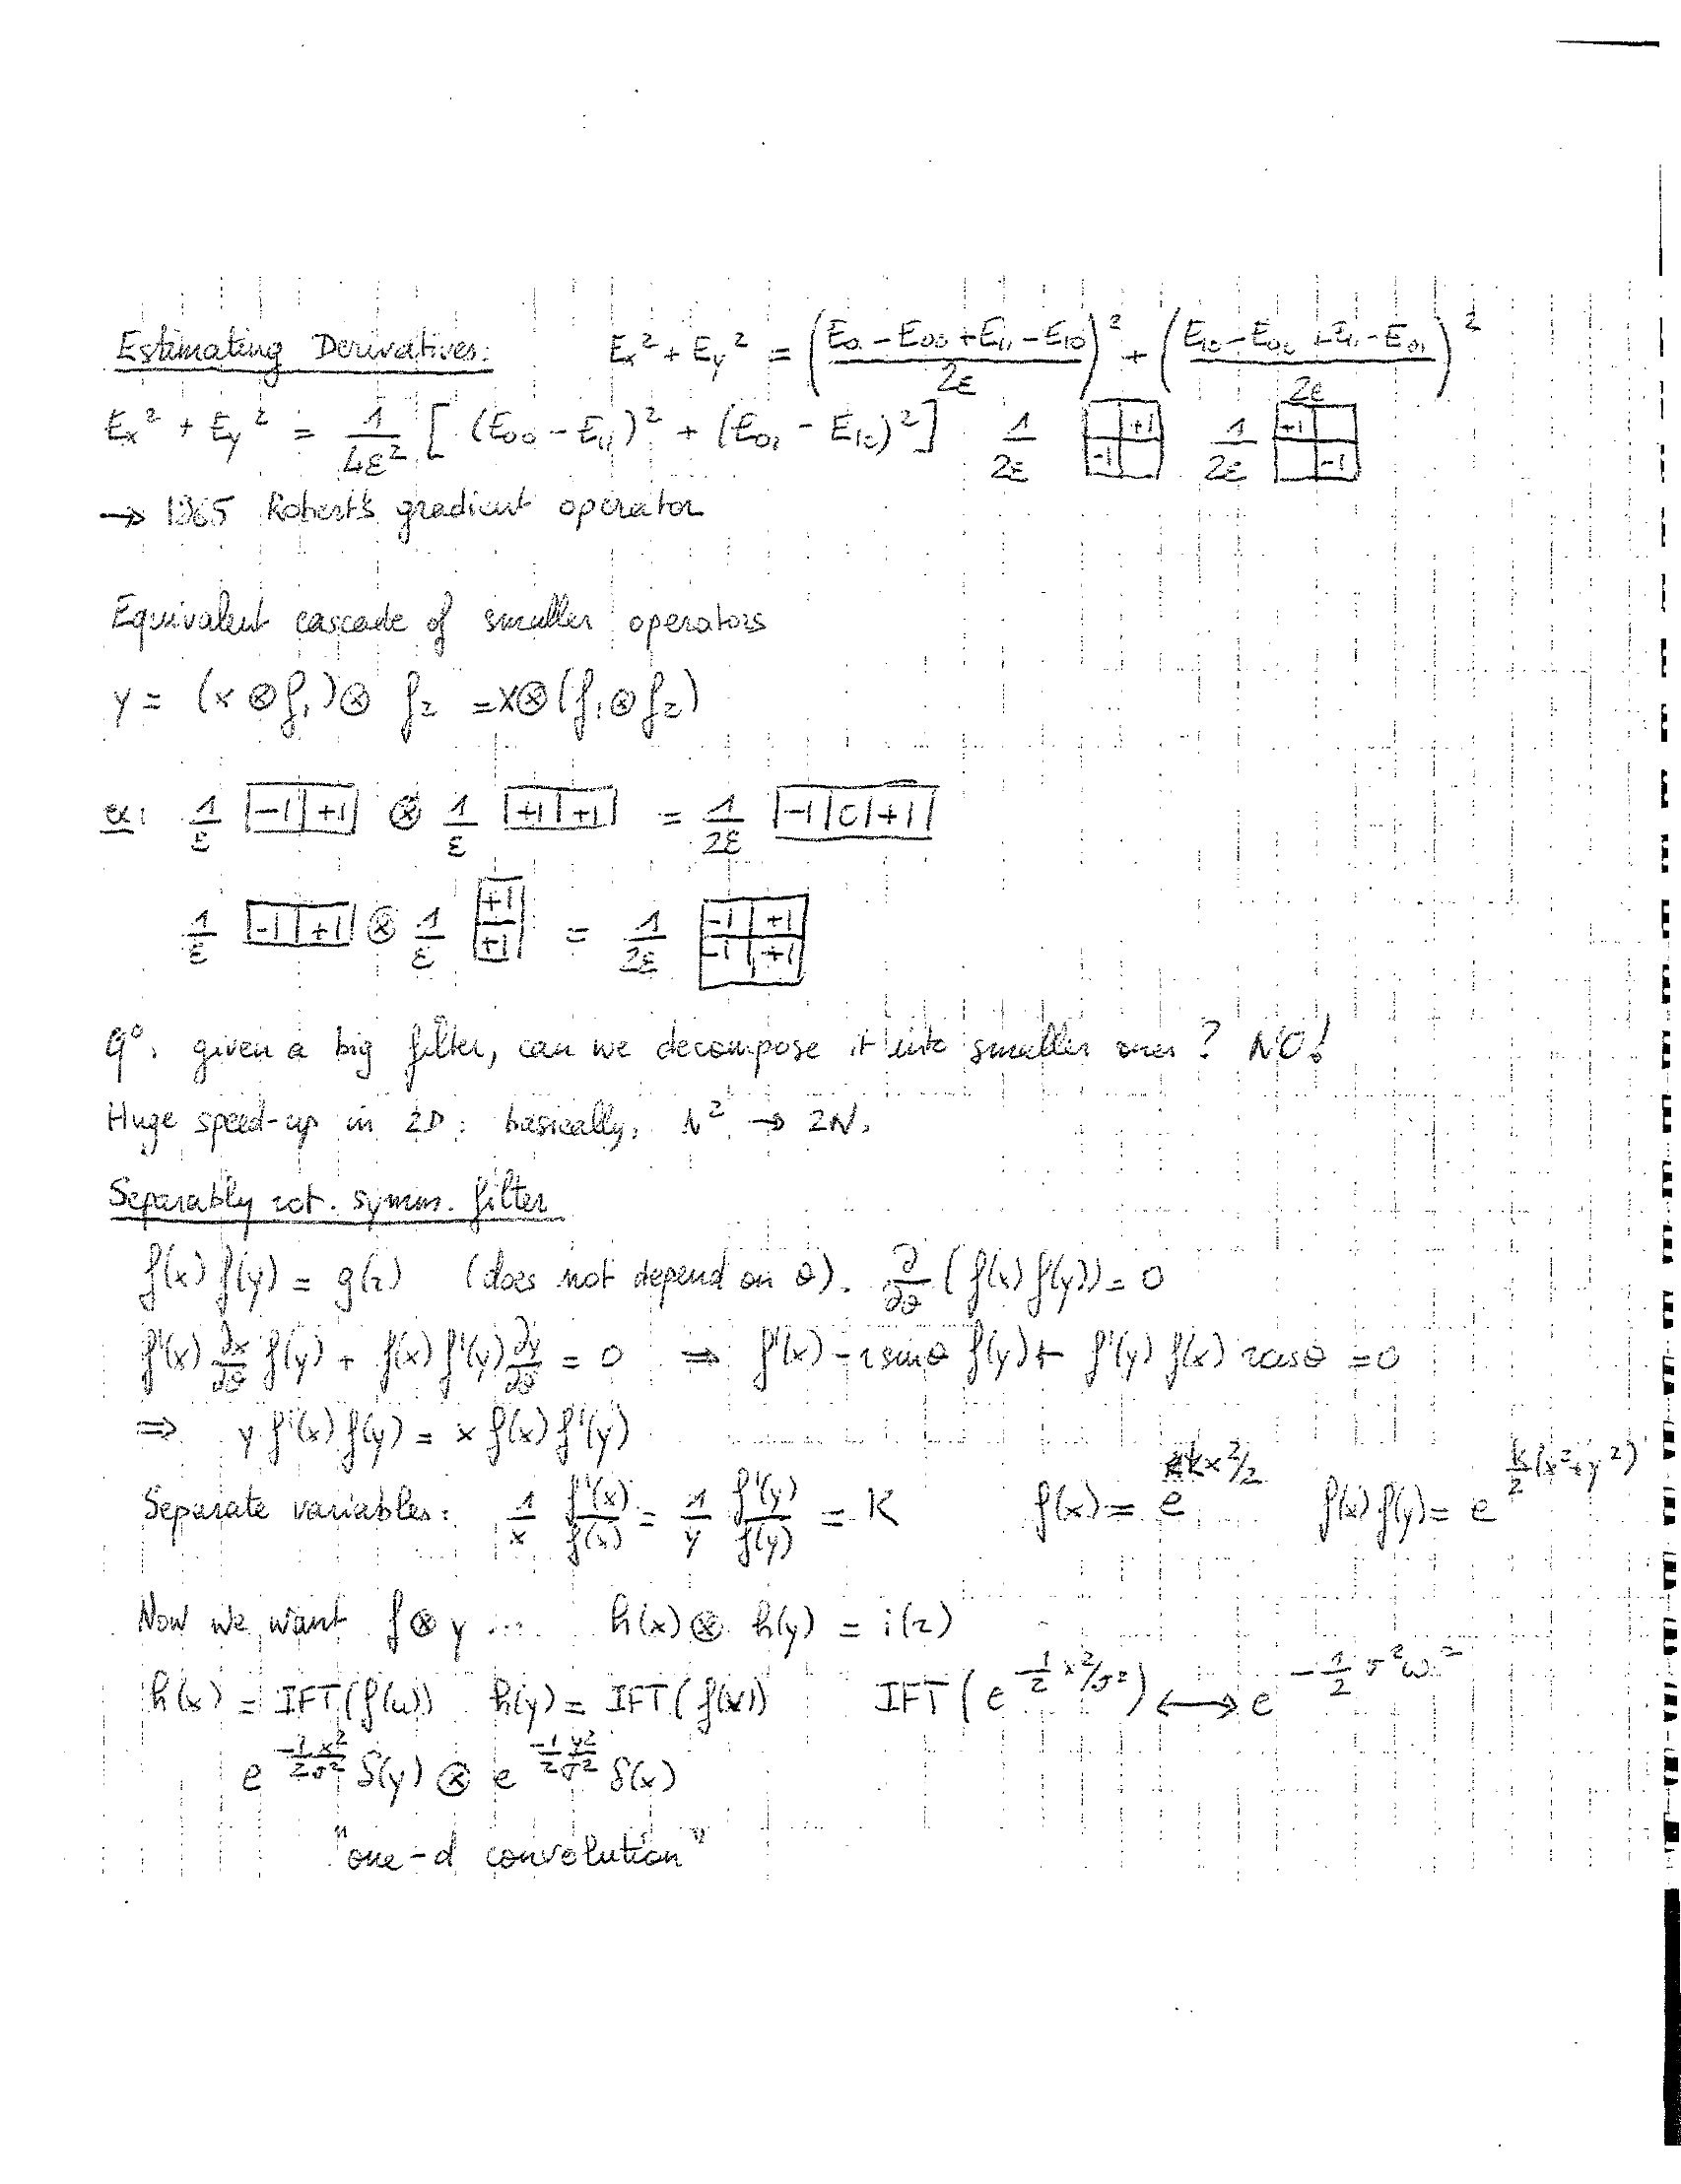 Estimating Derivatives: Ex² + Ey² = ((E01 - E00 + E11 - E10)/2ε)² + ((E10 - E00 + E11 - E01)/2ε)²
Ex² + Ey² = 1/4ε² [(E00 - E11)² + (E01 - E10)²] 1/2ε | |+1| |-1| | 1/2ε |+1| | | |-1|
→ 1965 Robert's gradient operator
Equivalent cascade of smaller operators
y = (x ⊗ f1) ⊗ f2 = x ⊗ (f1 ⊗ f2)
ex: 1/ε |-1|+1| ⊗ 1/ε |+1|+1| = 1/2ε |-1|0|+1|
1/ε |-1|+1| ⊗ 1/ε |+1| |+1| = 1/2ε |-1|+1| |-1|+1|
q°: given a big filter, can we decompose it into smaller ones? NO!
Huge speed-up in 2D: basically, N² → 2N.
Separably rot. symm. filter
f(x) f(y) = g(r) (does not depend on θ). ∂/∂θ (f(x) f(y)) = 0
f'(x) ∂x/∂θ f(y) + f(x) f'(y) ∂y/∂θ = 0 ⇒ f'(x) - r sinθ f(y) + f'(y) f(x) r cosθ = 0
⇒ y f'(x) f(y) = x f(x) f'(y)
Separate variables: 1/x f'(x)/f(x) = 1/y f'(y)/f(y) = K f(x) = e^(kx²/2) f(x) f(y) = e^(k/2 (x²+y²))
Now we want f ⊗ y ... h(x) ⊗ h(y) = i(r)
h(x) = IFT(f(u)) h(y) = IFT(f(v)) IFT(e^(-1/2 x²/σ²)) ↔ e^(-1/2 σ²ω²)
e^(-1/2 x²/σ²) δ(y) ⊗ e^(-1/2 y²/σ²) δ(x)
"one-d convolution"